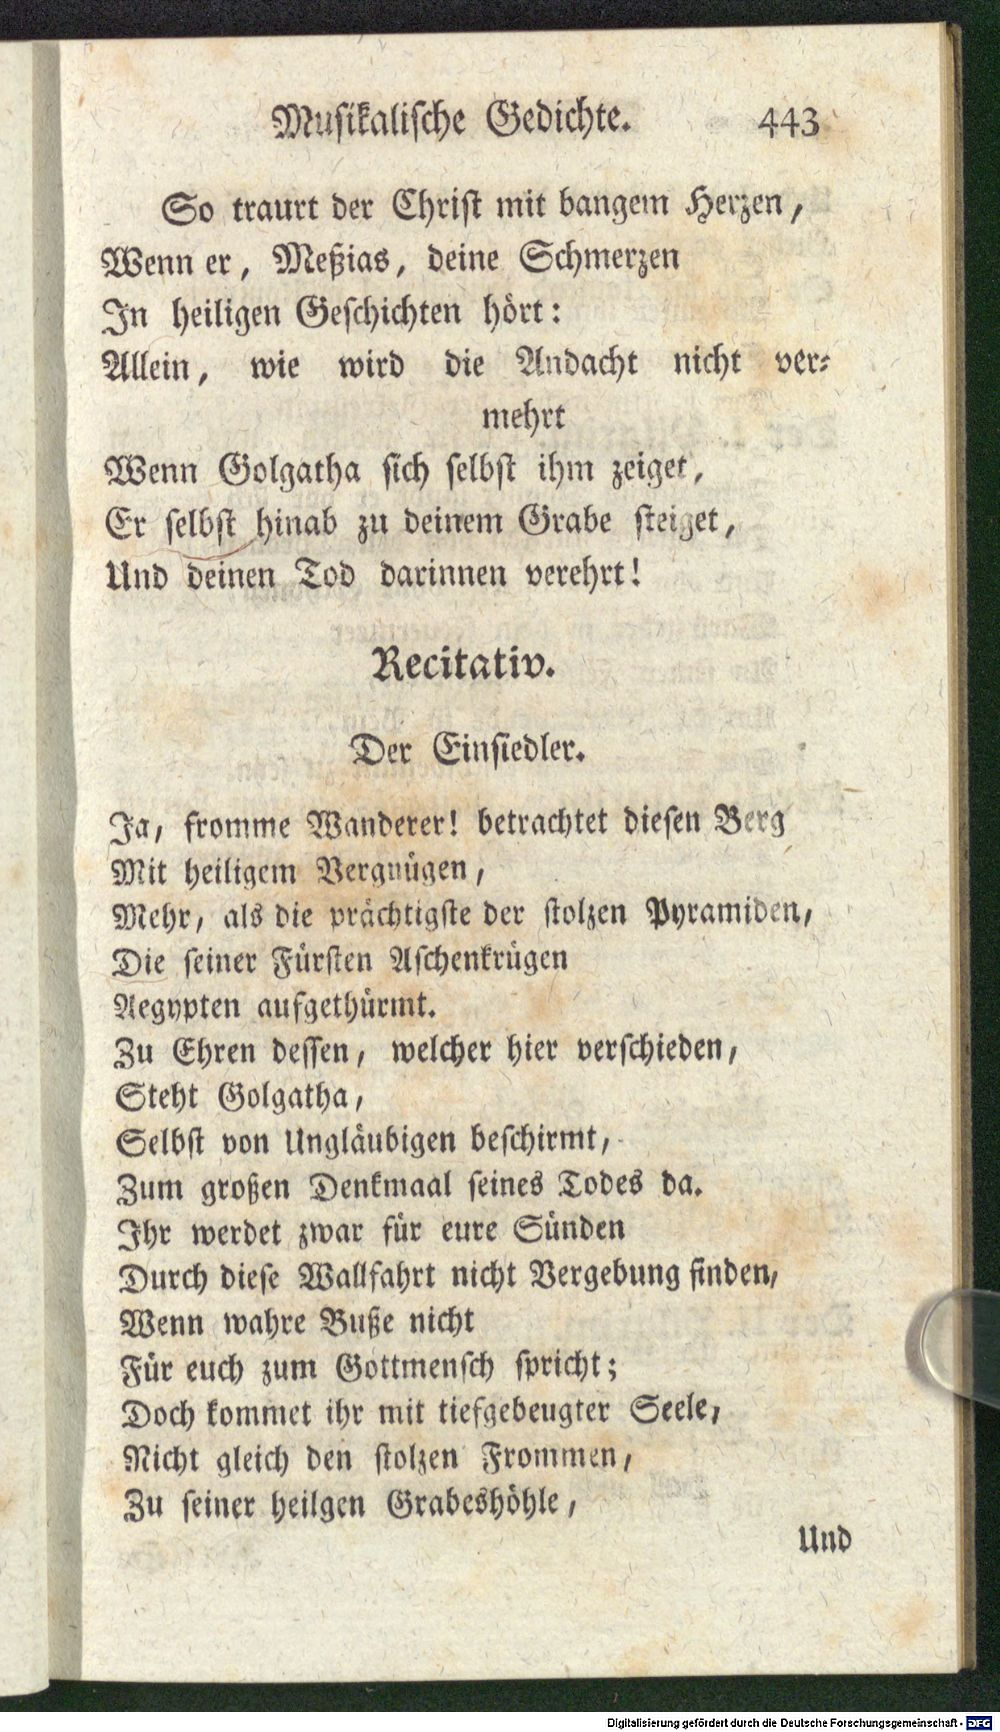 Musikalische Gedichte. 443
So traurt der Christ mit bangem Herzen,
Wenn er, Meßias, deine Schmerzen
In heiligen Geschichten hört:
Allein, wie wird die Andacht nicht ver-
mehrt
Wenn Golgatha sich selbst ihm zeiget,
Er selbst hinab zu deinem Grabe steiget,
Und deinen Tod darinnen verehrt!
Recitativ.
Der Einsiedler.
Ja, fromme Wanderer! betrachtet diesen Berg
Mit heiligem Vergnügen,
Mehr, als die prächtigste der stolzen Pyramiden,
Die seiner Fürsten Aschenkrügen
Aegypten aufgethürmt.
Zu Ehren dessen, welcher hier verschieden,
Steht Golgatha,
Selbst von Ungläubigen beschirmt,
Zum großen Denkmaal seines Todes da.
Ihr werdet zwar für eure Sünden
Durch diese Wallfahrt nicht Vergebung finden,
Wenn wahre Buße nicht
Für euch zum Gottmensch spricht;
Doch kommet ihr mit tiefgebeugter Seele,
Nicht gleich den stolzen Frommen,
Zu seiner heilgen Grabeshöhle,
Und
Digitalisierung gefördert durch die Deutsche Forschungsgemeinschaft - DFG